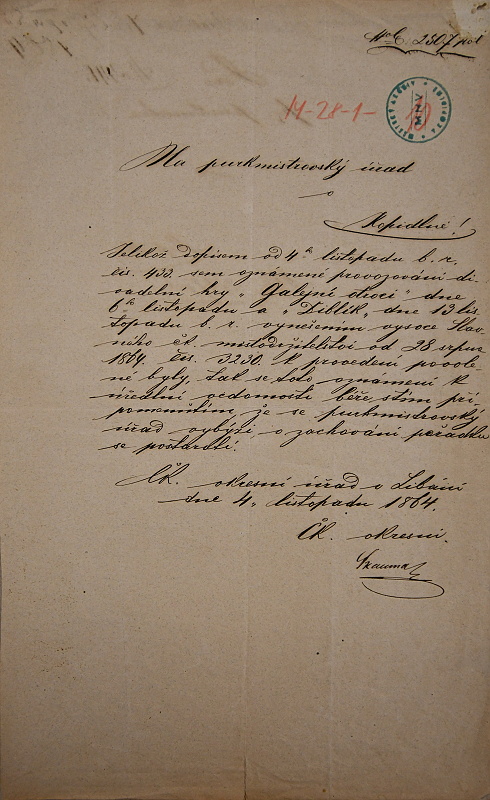 2507 pol
14-28-1-
MĚSTSKÝ ARCHIV
MNV
10
Na purkmistrovský úřad
v
Kopidlně!
Jelikož dopisem od 4ho listopadu b. r.
čis. 433. sem oznámené provozování di-
vadelní hry „Galejní otroci" dne
6ho listopadu a „Diblík" dne 13 lis-
topadu b. r. vynešením vysoce Sláv-
ného ck. místodržitelství od 28 srpna
1864. čis. 3230. k provedení povole-
né byly, tak se toto oznámení k
úřední vědomosti béře s tím při-
pomenutím, že se purkmistrovský
úřad vybýzí, o zachování pořádku
se postarati.
Ck. okresní úřad v Libáni
dne 4. listopadu 1864.
Ck. okresní.